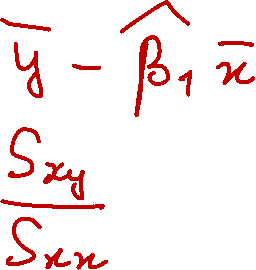 ȳ - β̂₁ x̄
Sxy / Sxx